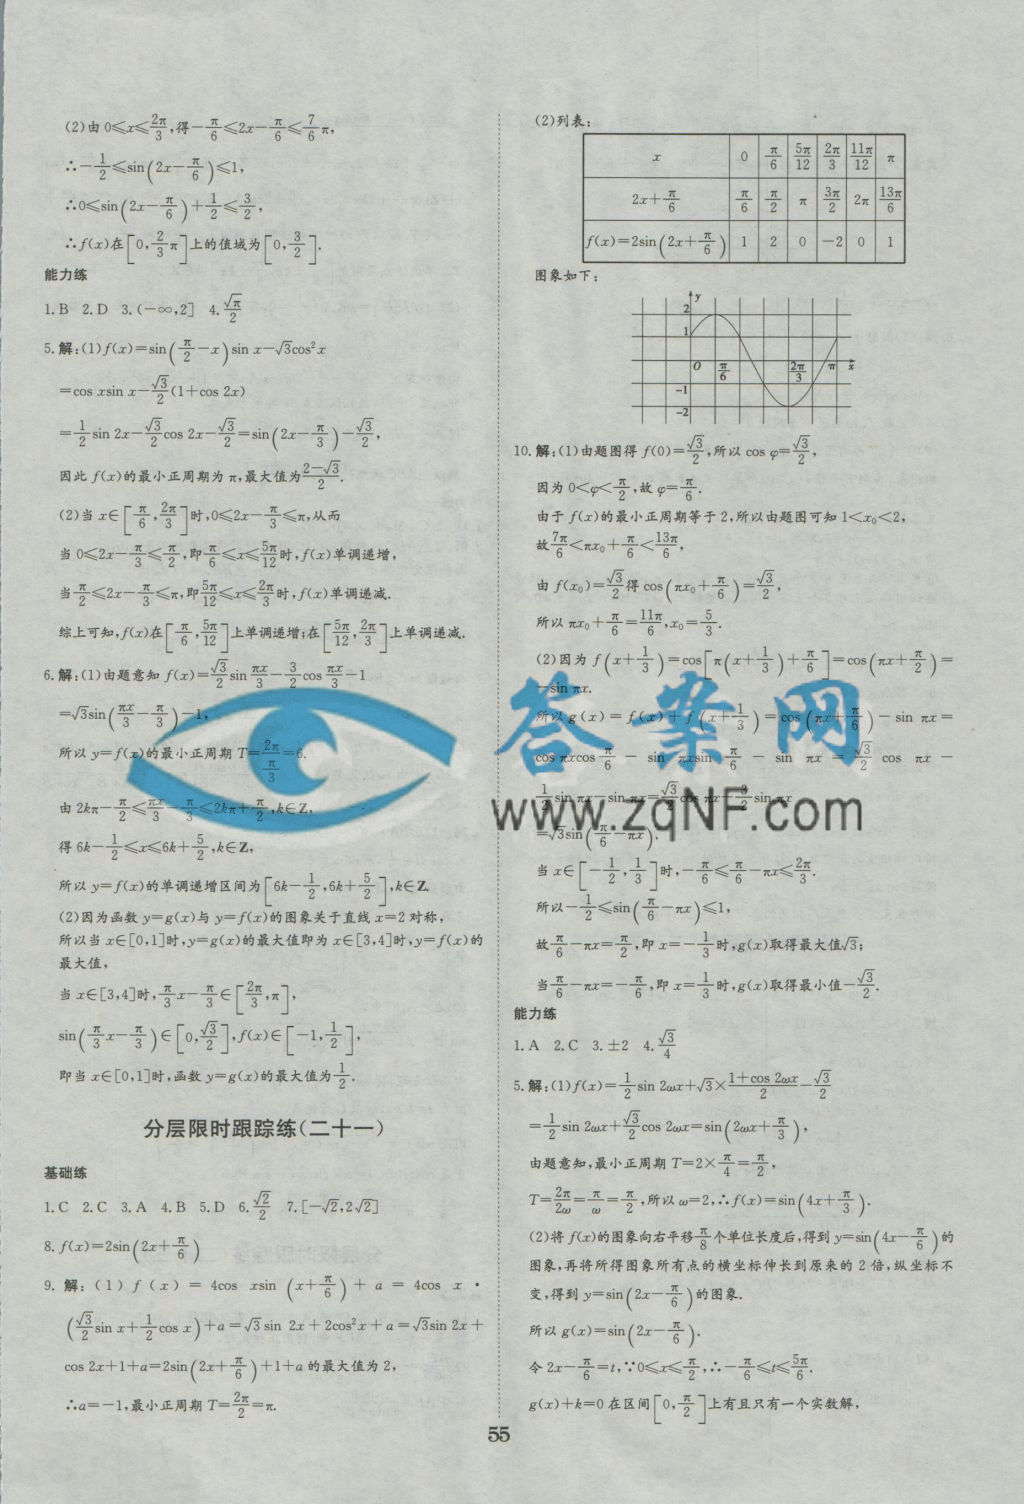 (2)由0≤x≤2π/3,得-π/6≤2x-π/6≤7/6π,
∴-1/2≤sin(2x-π/6)≤1,
∴0≤sin(2x-π/6)+1/2≤3/2,
∴f(x)在[0,2/3π]上的值域为[0,3/2].
能力练
1.B 2.D 3.(-∞,2] 4.√π/2
5.解:(1)f(x)=sin(π/2-x)sin x-√3cos²x
=cos xsin x-√3/2(1+cos 2x)
=1/2sin 2x-√3/2cos 2x-√3/2=sin(2x-π/3)-√3/2,
因此f(x)的最小正周期为π,最大值为(2-√3)/2.
(2)当x∈[π/6,2π/3]时,0≤2x-π/3≤π,从而
当0≤2x-π/3≤π/2,即π/6≤x≤5π/12时,f(x)单调递增,
当π/2≤2x-π/3≤π,即5π/12≤x≤2π/3时,f(x)单调递减.
综上可知,f(x)在[π/6,5π/12]上单调递增;在[5π/12,2π/3]上单调递减.
6.解:(1)由题意知f(x)=√3/2sin πx/3-3/2cos πx/3-1
=√3sin(πx/3-π/3)-1,
所以y=f(x)的最小正周期T=2π/(π/3)=6.
由2kπ-π/2≤πx/3-π/3≤2kπ+π/2,k∈Z,
得6k-1/2≤x≤6k+5/2,k∈Z,
所以y=f(x)的单调递增区间为[6k-1/2,6k+5/2],k∈Z.
(2)因为函数y=g(x)与y=f(x)的图象关于直线x=2对称,
所以当x∈[0,1]时,y=g(x)的最大值即为x∈[3,4]时,y=f(x)的
最大值,
当x∈[3,4]时,π/3x-π/3∈[2π/3,π],
sin(π/3x-π/3)∈[0,√3/2],f(x)∈[-1,1/2],
即当x∈[0,1]时,函数y=g(x)的最大值为1/2.
分层限时跟踪练(二十一)
基础练
1.C 2.C 3.A 4.B 5.D 6.√2/2 7.[-√2,2√2]
8.f(x)=2sin(2x+π/6)
9.解:(1)f(x)=4cos xsin(x+π/6)+a=4cos x·
(√3/2sin x+1/2cos x)+a=√3sin 2x+2cos²x+a=√3sin 2x+
cos 2x+1+a=2sin(2x+π/6)+1+a的最大值为2,
∴a=-1,最小正周期T=2π/2=π.
(2)列表:
x 0 π/6 5π/12 2π/3 11π/12 π
2x+π/6 π/6 π/2 π 3π/2 2π 13π/6
f(x)=2sin(2x+π/6) 1 2 0 -2 0 1
图象如下:
y
2
1
O π/6 2π/3 π x
-1
-2
10.解:(1)由题图得f(0)=√3/2,所以cos φ=√3/2,
因为0<φ<π/2,故φ=π/6.
由于f(x)的最小正周期等于2,所以由题图可知1<x₀<2,
故7π/6<πx₀+π/6<13π/6,
由f(x₀)=√3/2得cos(πx₀+π/6)=√3/2,
所以πx₀+π/6=11π/6,x₀=5/3.
(2)因为f(x+1/3)=cos[π(x+1/3)+π/6]=cos(πx+π/2)=
-sin πx.
所以g(x)=f(x)+f(x+1/3)=cos(πx+π/6)-sin πx=
cos πxcos π/6-sin πxsin π/6-sin πx=√3/2cos πx-
1/2sin πx-sin πx=√3/2cos πx-3/2sin πx
=√3sin(π/6-πx).
答案网
www.zqNF.com
当x∈[-1/2,1/3]时,-π/6≤π/6-πx≤2π/3.
所以-1/2≤sin(π/6-πx)≤1,
故π/6-πx=π/2,即x=-1/3时,g(x)取得最大值√3;
当π/6-πx=-π/6,即x=1/3时,g(x)取得最小值-√3/2.
能力练
1.A 2.C 3.±2 4.√3/4
5.解:(1)f(x)=1/2sin 2ωx+√3×(1+cos 2ωx)/2-√3/2
=1/2sin 2ωx+√3/2cos 2ωx=sin(2ωx+π/3),
由题意知,最小正周期T=2×π/4=π/2,
T=2π/2ω=π/ω=π/2,所以ω=2,∴f(x)=sin(4x+π/3).
(2)将f(x)的图象向右平移π/8个单位长度后,得到y=sin(4x-π/6)的
图象,再将所得图象所有点的横坐标伸长到原来的2倍,纵坐标不
变,得到y=sin(2x-π/6)的图象.
所以g(x)=sin(2x-π/6).
令2x-π/6=t,∵0≤x≤π/2,∴-π/6≤t≤5π/6.
g(x)+k=0在区间[0,π/2]上有且只有一个实数解,
55